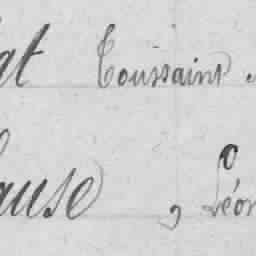 at Toussaint
ause, Léon